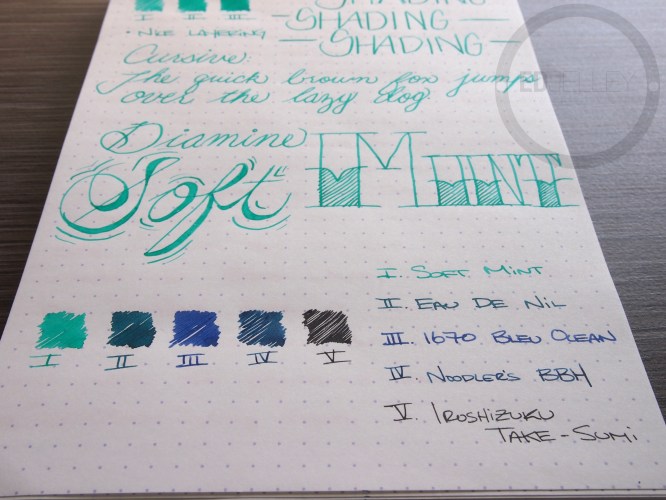 SHADING
— SHADING —
— SHADING —
I II III
• NICE LAYERING
Cursive:
The quick brown fox jumps
over the lazy dog.
Diamine
Soft Mint
I. SOFT MINT
II. EAU DE NIL
III. 1670 BLEU OCEAN
IV. NOODLER'S BBH
V. IROSHIZUKU
TAKE-SUMI
I II III IV V